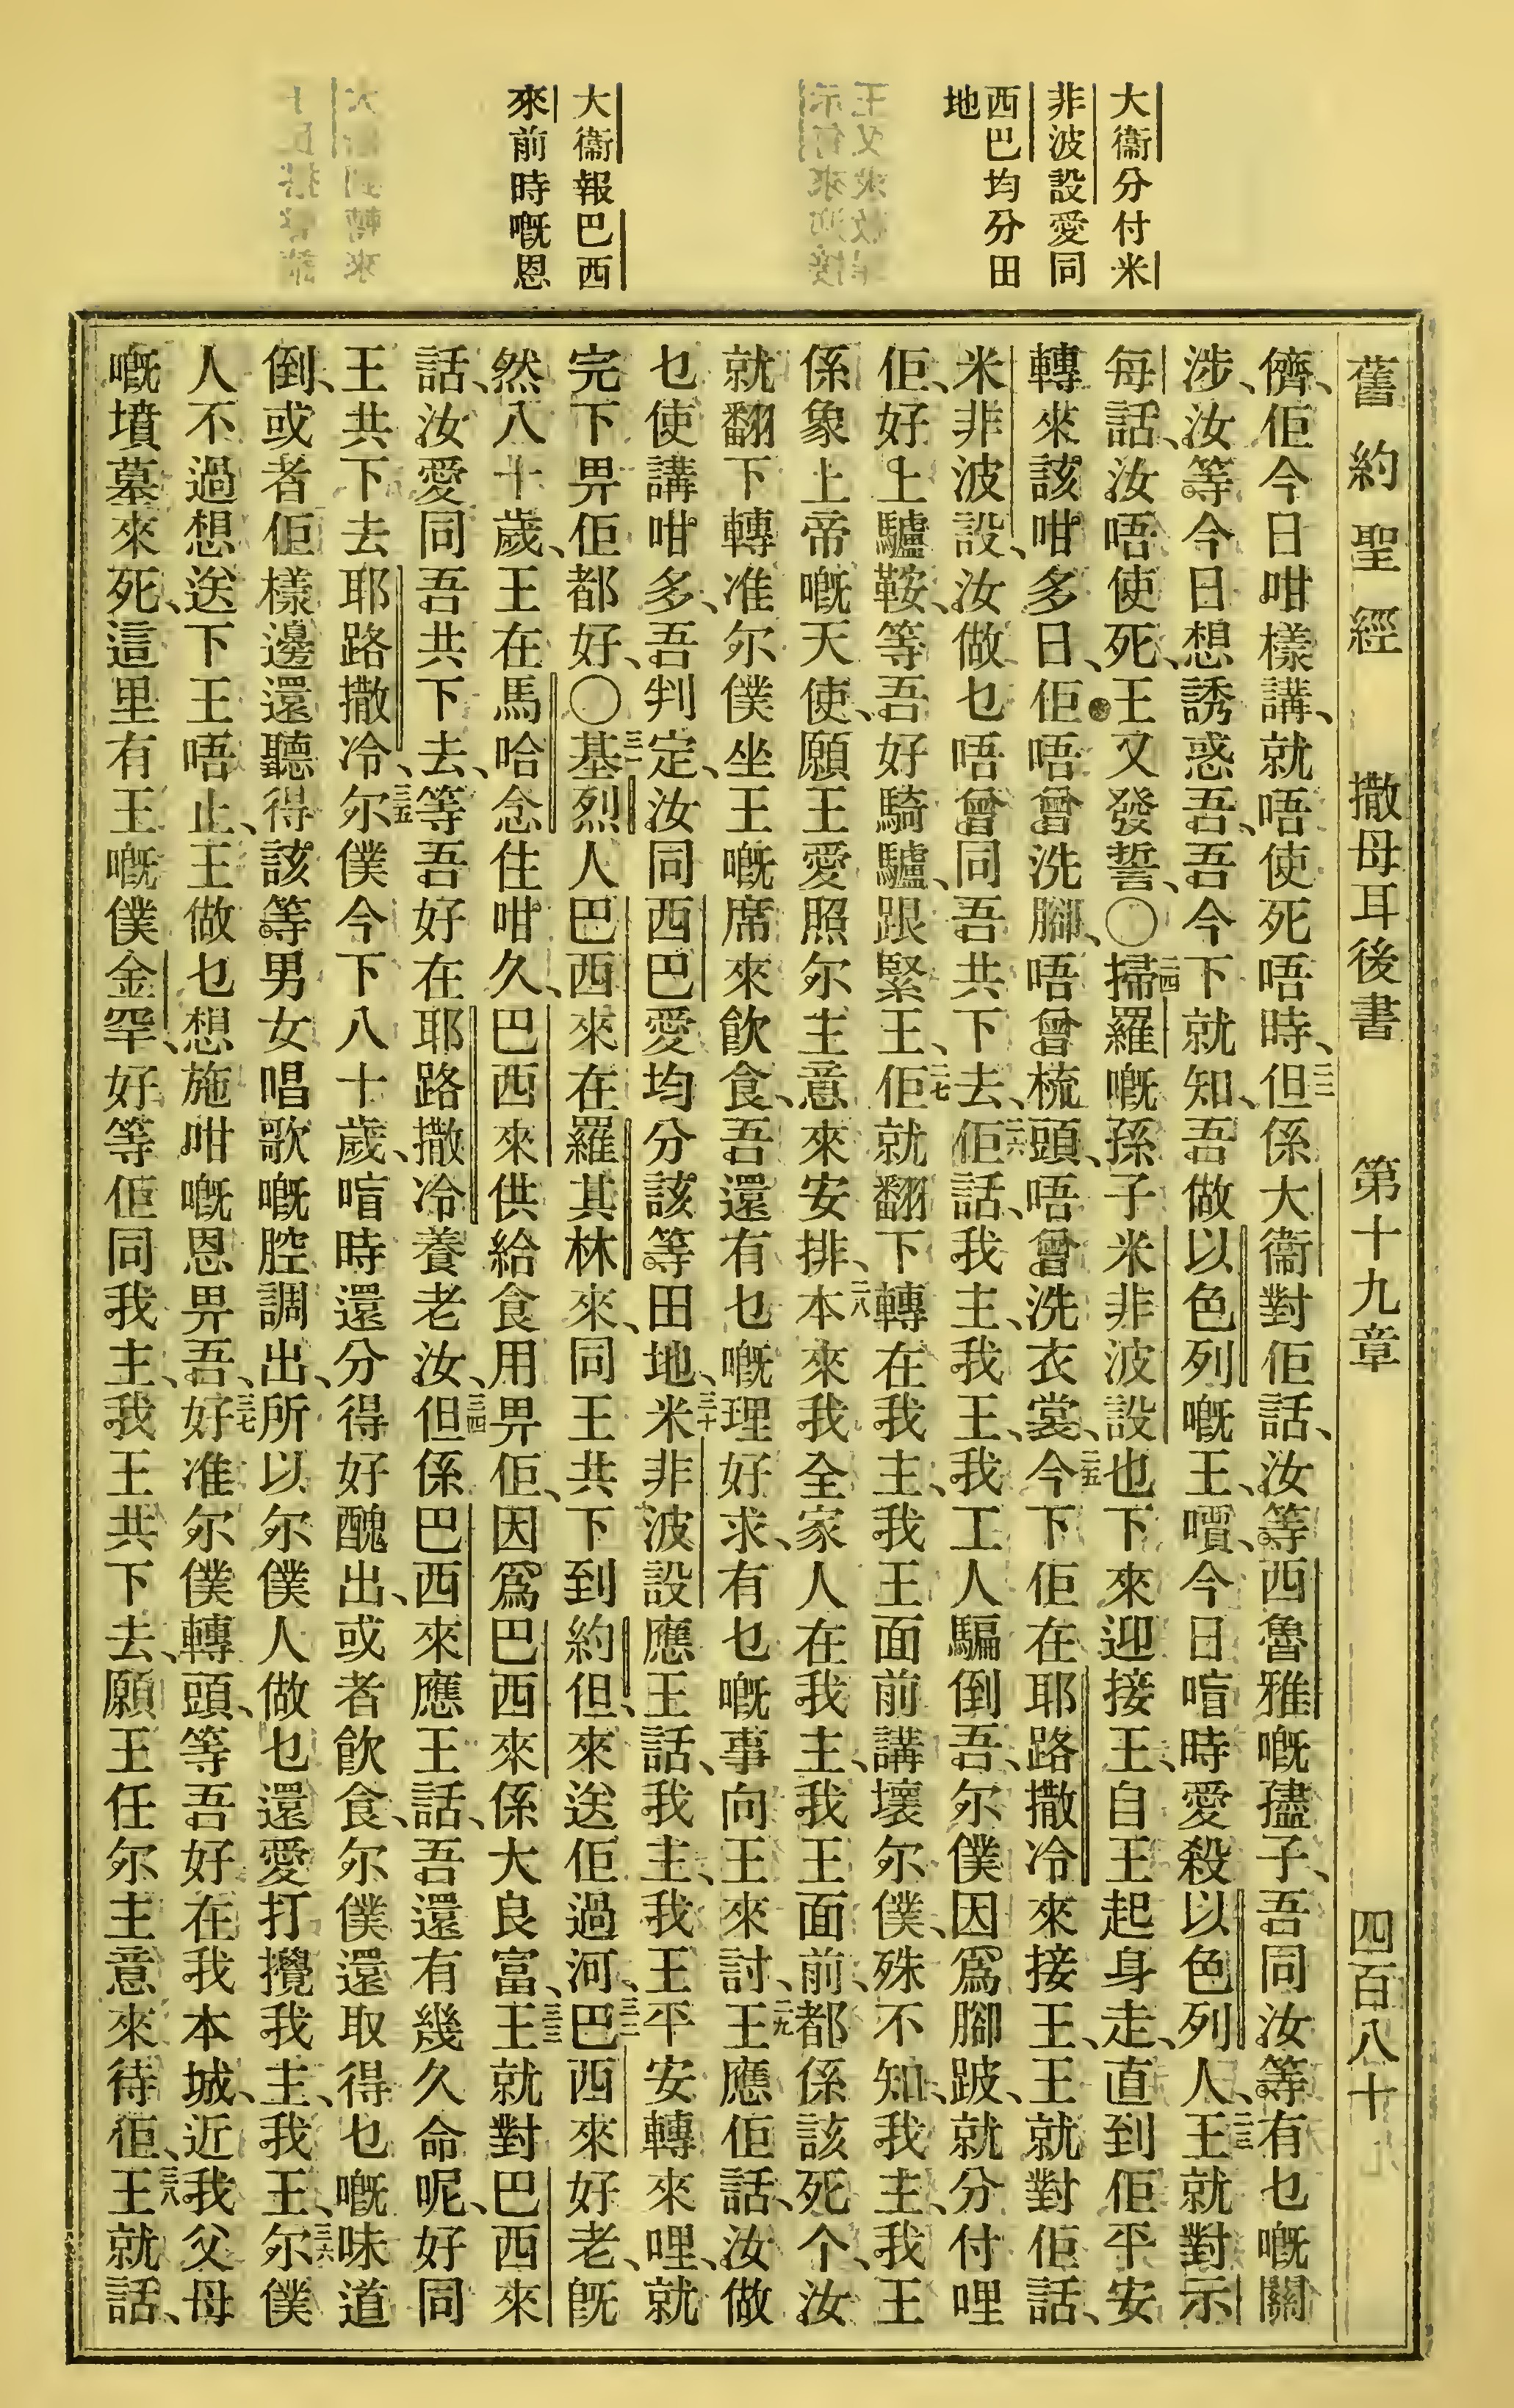 大衞分付米
非波設愛同
西巴均分田
地
大衞報巴西
來前時嘅恩
舊約聖經 撒母耳後書 第十九章 四百八十
儕佢今日咁樣講、就唔使死唔時、二二但係大衞對佢話、汝等西魯雅嘅𡥧子、吾同汝等有乜嘅關
涉、汝等今日想誘惑吾、吾今下就知、吾做以色列嘅王、嘪今日喑時愛殺以色列人、二三王就對示
每話、汝唔使死、王又發誓、〇二四掃羅嘅孫子米非波設也下來迎接王、自王起身走、直到佢平安
轉來該咁多日、佢唔曾洗腳、唔曾梳頭、唔曾洗衣裳、二五今下佢在耶路撒冷來接王、王就對佢話、
米非波設、汝做乜唔曾同吾共下去、二六佢話、我主、我王、我工人騙倒吾、尔僕因爲腳跛、就分付哩
佢、好上驢鞍、等吾好騎驢、跟緊王、二七佢就翻下轉在我主、我王面前講壞尔僕、殊不知、我主、我王
係象上帝嘅天使、願王愛照尔主意來安排、二八本來我全家人在我主、我王面前、都係該死个、汝
就翻下轉准尔僕坐王嘅席來飲食、吾還有乜嘅理好求、有乜嘅事向王來討、二九王應佢話、汝做
乜使講咁多、吾判定、汝同西巴愛均分該等田地、三十米非波設應王話、我主、我王平安轉來哩、就
完下畀佢都好、〇三一基烈人巴西來在羅其林來、同王共下到約但、來送佢過河、三二巴西來好老、旣
然八十歲、王在馬哈念住咁久、巴西來供給食用畀佢、因爲巴西來係大良富、三三王就對巴西來
話、汝愛同吾共下去、等吾好在耶路撒冷養老汝、三四但係巴西來應王話、吾還有幾久命呢、好同
王共下去耶路撒冷、三五尔僕今下八十歲、喑時還分得好醜出、或者飲食、尔僕還取得乜嘅味道
倒、或者佢樣邊還聽得該等男女唱歌嘅腔調出、所以尔僕人做乜還愛打攪我主、我王、三六尔僕
人不過想送下王唔止、王做乜想施咁嘅恩畀吾、三七好准尔僕轉頭、等吾好在我本城、近我父母
嘅墳墓來死、這里有王嘅僕金罕、好等佢同我主、我王共下去、願王任尔主意來待佢、三八王就話、